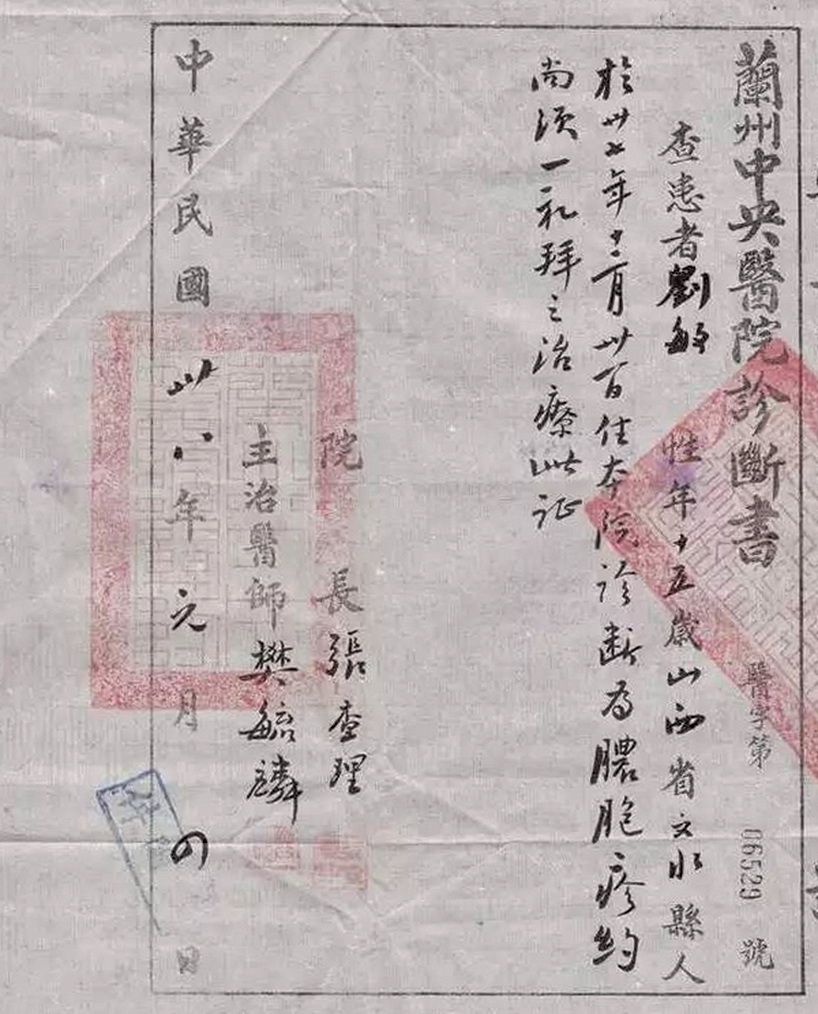 蘭州中央醫院診斷書 醫字第 06529 號
查患者劉敏 性 年十五歲山西省文水縣人
於卅七年十二月卅一日住本院診斷為膿胞疹約
尚須一礼拜之治療此証
院長 張查理
主治醫師 樊毓麟
中華民國 卅八年元月 日